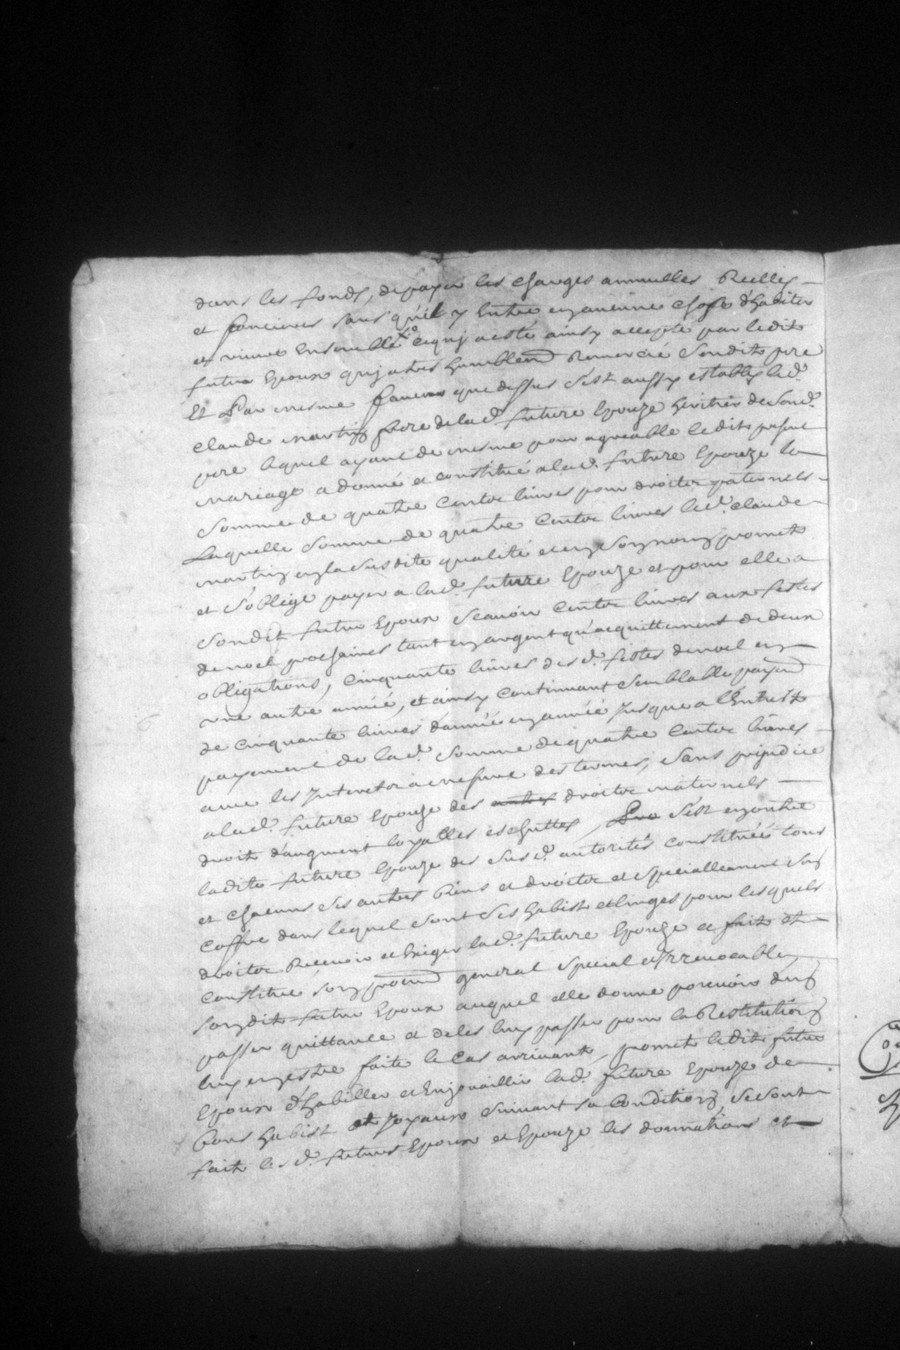 dans les fonds, de payer les charges annuelles Reelles
et foncieres sans qu'il y Entre en aucune chose d'habiter
et vivre Ensemble ce qui a esté ainsy accepté par ledit
futur Epoux qui a tres humblemt Remercié Sondit pere
Et Par mesme faveur que dessus s'est aussy establis led.
claude martin frere de lad. future Epouze heritier de Sond.
pere lequel ayant de mesme pour agreable ledit pnt
mariage a donné et constitué a lad. future Epouze la
Somme de quatre Centz livres pour droitz paternels
Laquelle Somme de quatre Centz livres led. claude
martin en la susdite qualité et en Son nom promet
et s'oblige payer a lad. future Epouze et pour elle a
Sondit futur Epoux Scavoir Centz livres aux festes
de noel prochaines tant en argent qu'acquittement de deux
obligations, cinquante livres des d. festes de noel en
une autre année, et ainsy Continuant Semblable payemt
de Cinquante livres d'année en année Jusque a l'Entier
payement de lad. Somme de quatre Centz livres
avec les Interetz a mesure des termes, Sans prejudice
a lad. future Epouze des autres droitz maternels
droit d'augment loyalles eschuttes, s'est en outre
ladite future Epouze des susd. autorités constituée tous
et chacuns ses autres Biens et droitz et speciallement son
coffre dans lequel sont ses habist et linges pour lesquels
droitz Recevoir et Exiger lad. future Epouze a fait et
constitué son procur general special et Irrevocable
son dit futur Epoux auquel elle donne pouvoir d'en
passer quittance et de les luy passer pour la Restitution
luy en estre faite le cas arrivant, promet ledit futur
Epoux d'habiller et Enjoailler lad. future Epouze de
bons habist et Joyaux suivant sa Condition Se sont
fait les d. futurs Epoux et Epouze les donnations et